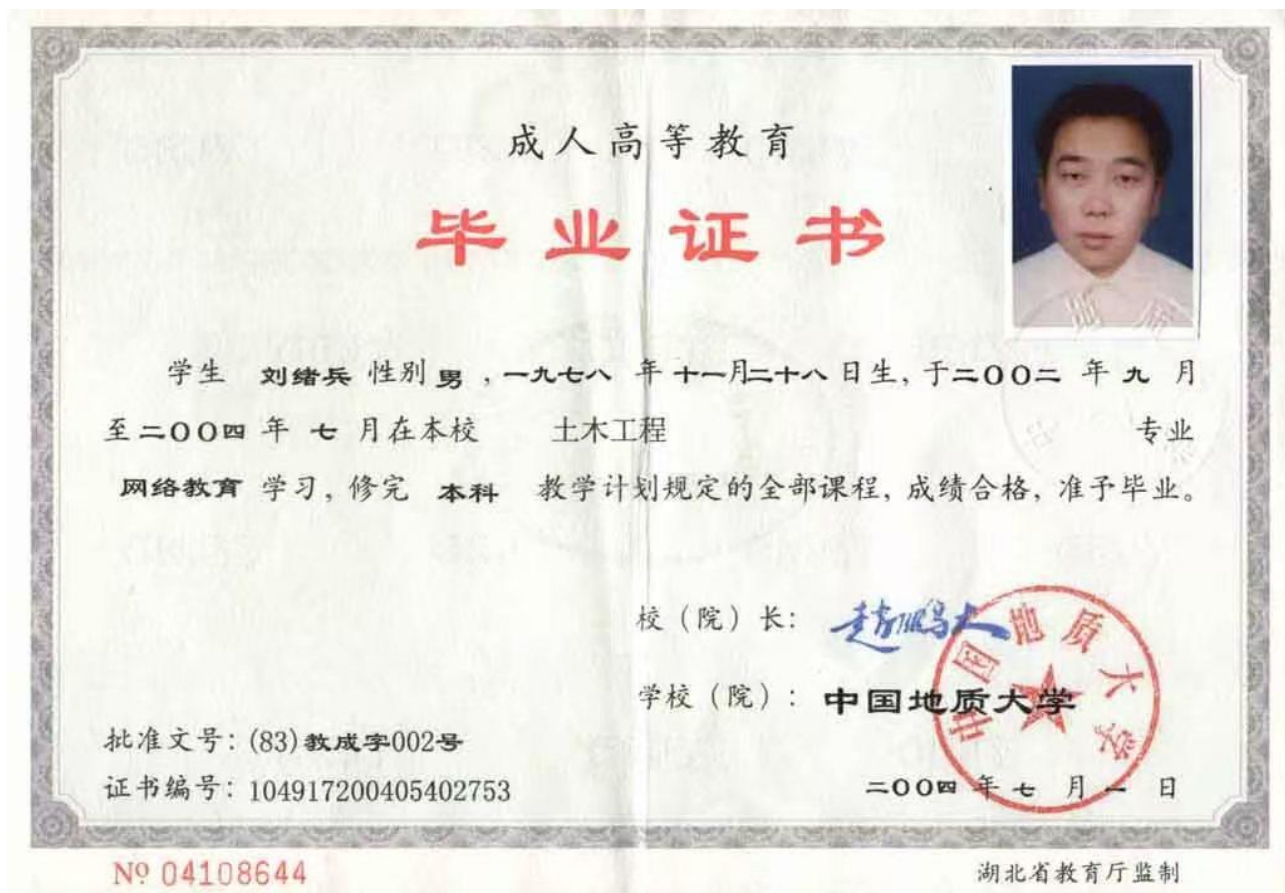 成人高等教育
毕业证书
学生 刘绪兵 性别 男，一九七八 年 十一月二十八 日生，于二〇〇二 年 九 月
至二〇〇四 年 七 月在本校 土木工程 专业
网络教育 学习，修完 本科 教学计划规定的全部课程，成绩合格，准予毕业。
校（院）长： 赵鹏大
学校（院）： 中国地质大学
中国地质大学
批准文号：(83)教成字002号
证书编号：104917200405402753
二〇〇四 年 七 月 一 日
№ 04108644
湖北省教育厅监制